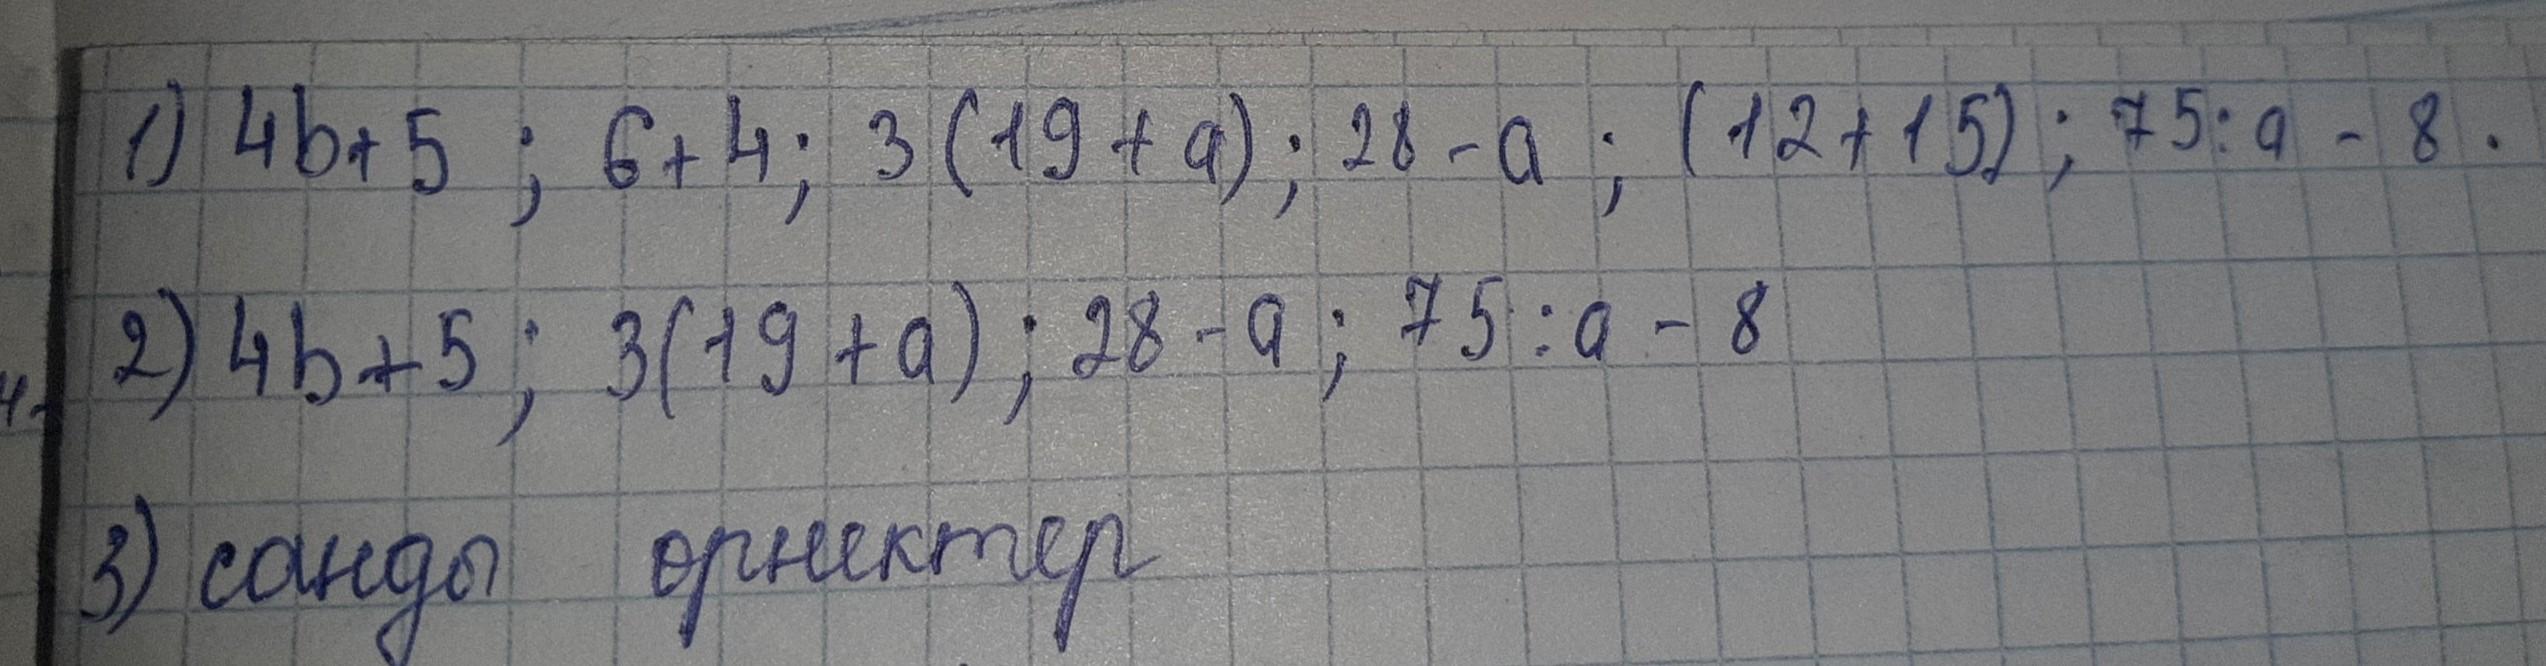 1) 4b+5 ; 6+4; 3(19+a); 28-a ; (12+15); 75:a - 8.
2) 4b+5; 3(19+a); 28-a; 75:a - 8
3) санды орнектер